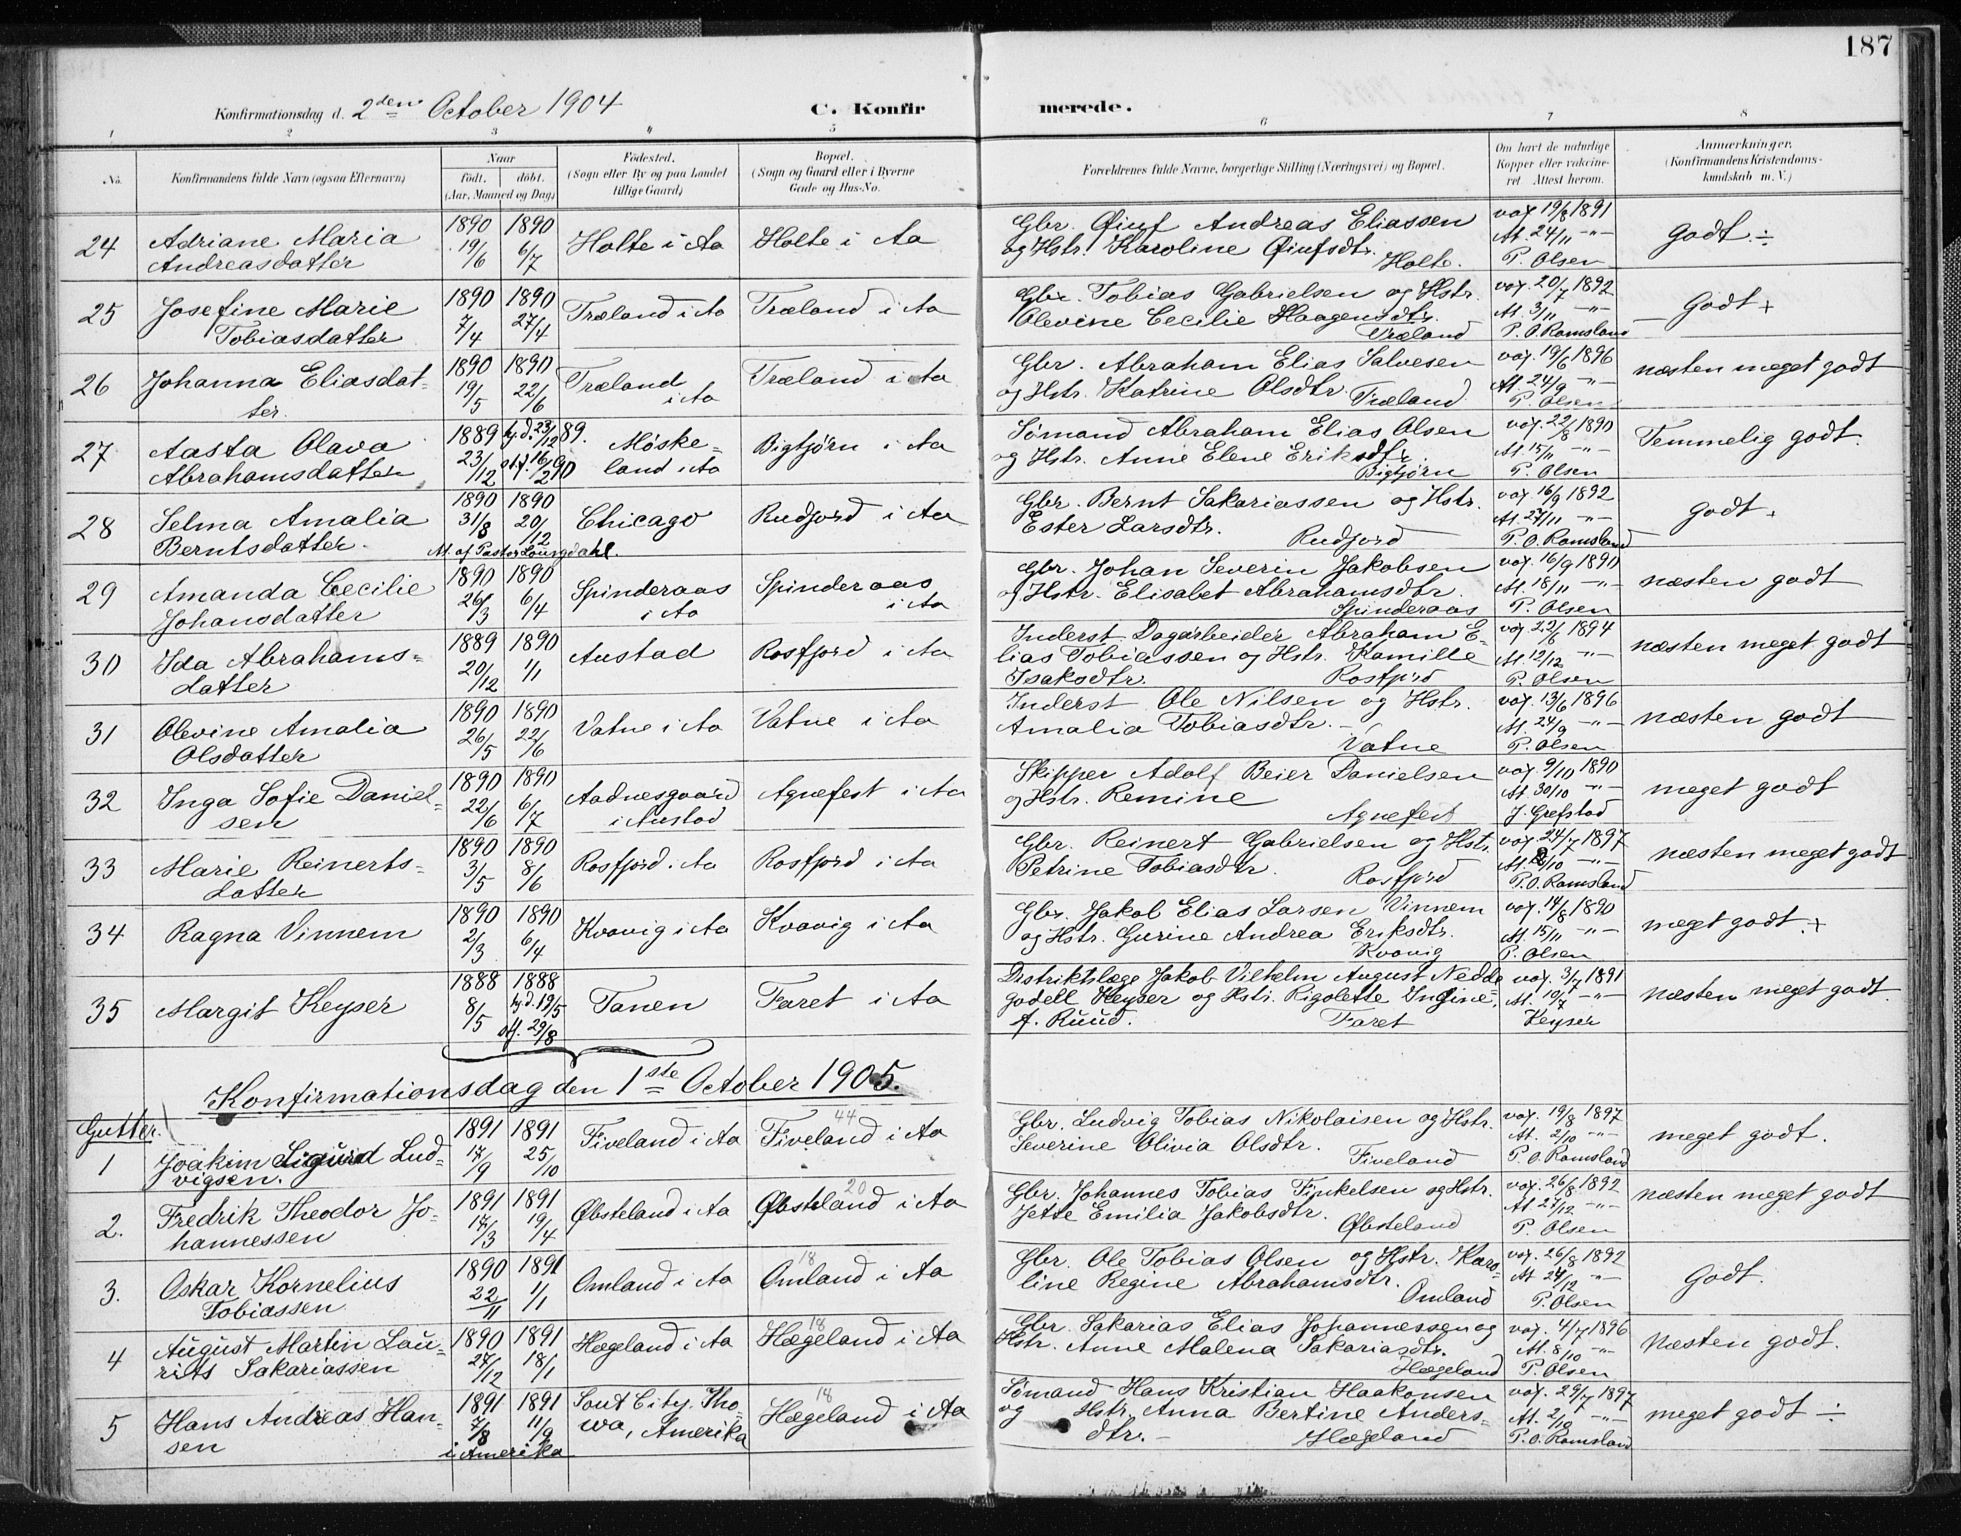 187
Konfirmationsdag d. 2den October 1904
C. Konfirmerede.
1 2 3 4 5 6 7 8
No. Konfirmandens fulde Navn (ogsaa Efternavn) Naar født. døbt. (Aar, Maaned og Dag) Fødested. (Sogn eller By og paa Landet tillige Gaard) Bopæl. (Sogn og Gaard eller i Byerne Gade og Hus-No. Forældrenes fulde Navne, borgerlige Stilling (Næringsvei) og Bopæl. Om havt de naturlige Kopper eller vakcineret. Attest herom. Anmærkninger. (Konfirmandens Kristendomskundskab m. V.)
24 Adriane Maria Andreasdatter 1890 19/6 1890 6/7 Holte i Aa Holte i Aa Gbr. Øiuf Andreas Eliassen og Hstr. Karoline Øiufsdtr. Holte. vax 19/8 1891 At. 24/11 -"- P. Olsen godt ÷
25 Josefine Marie Tobiasdatter 1890 7/4 1890 27/4 Træland i Aa Træland i Aa Gbr. Tobias Gabrielsen og Hstr. Olevine Cecilie Haagensdtr. Træland vax. 20/7 1892 At. 3/11 -"- P. O. Ramsland Godt +
26 Johanna Eliasdatter. 1890 19/5 1890 22/6 Træland i Aa Træland i Aa Gbr. Abraham Elias Salvesen og Hstr. Katrine Olsdtr. Træland vax. 19/6 1896 At. 24/9 -"- P. Olsen næsten meget godt
27 Aasta Olava Abrahamsdatter 1889 23/12 hj.d. 23/12 89. st.f. 16/2 90 Møskeland i Aa Bigtjørn i Aa Sømand Abraham Elias Olsen og Hstr. Anne Elene Eriksdtr. Bigtjørn vax. 22/8 1890 At. 15/11 -"- P. Olsen Temmelig godt.
28 Selma Amalia Berntsdatter. 1890 31/8 1890 20/12 At. af Pastor Chicago Rudjord i Aa Gbr. Bernt Sakariassen og Hstr. Ester Larsdtr. Rudjord vax. 16/9 1892 At. 27/11 -"- P. O. Ramsland godt +
29 Amanda Cecilie Johansdatter 1890 26/3 1890 6/4 Spinderaas i Aa Spinderaas i Aa Gbr. Johan Severin Jakobsen og Hstr. Elisabet Abrahamsdtr. Spinderaas vax. 16/9 1890 At. 18/11 -"- P. Olsen næsten godt
30 Ida Abrahamsdatter 1889 20/12 1890 1/1 Austad Rosfjord i Aa Inderst Dagarbeider Abraham Elias Tobiassen og Hstr. Kamille Isaksdtr. Rosfjord vax. 22/6 1894 At. 12/12 -"- P. Olsen næsten meget godt
31 Olevine Amalia Olsdatter 1890 26/5 1890 22/6 Vatne i Aa Vatne i Aa Inderst Ole Nilsen og Hstr. Amalia Tobiasdtr. Vatne vax. 13/6 1896 At. 24/9 -"- P. Olsen næsten godt
32 Inga Sofie Danielsen 1890 22/6 1890 6/7 Aadnesgaard i Austad Agnefest i Aa Skipper Adolf Beier Danielsen og Hstr. Remine Agnefest vax. 9/10 1890 At 30/10 -"- J. Grefstad meget godt
33 Marie Reinertsdatter 1890 3/5 1890 8/6 Rosfjord i Aa Rosfjord i Aa Gbr. Reinert Gabrielsen og Hstr. Petrine Tobiasdtr. Rosfjord vax. 24/7 1897 At. /10 -"- P. O. Ramsland næsten meget godt
34 Ragna Vinnem 1890 2/3 1890 6/4 Kvavig i Aa Kvavig i Aa Gbr. Jakob Elias Larsen Vinnem og Hstr. Gurine Andrea Eriksdtr. Kvavig vax. 14/8 1890 At. 15/11 -"- P. Olsen meget godt. +
35 Margit Keyser 1888 8/5 1888 hj.d. 19/5 stf. 29/8 Tanen Faret i Aa Distriktslæge Jakob Vilhelm August Neddegodell Keyser og Hstr. Rigolette Ingine, f. Ruud. Faret vax. 3/7 1891 At. 10/7 -"- Keyser næsten meget godt.
Konfirmationsdag den 1ste October 1905.
Gutter.
1 Joakim Sigurd Ludvigsen. 1891 17/9 1891 25/10 Fiveland i Aa Fiveland i Aa 44 Gbr. Ludvig Tobias Nikolaisen og Hstr. Severine Olivia Olsdtr. Fiveland vax. 19/8 1897 At. 2/10 -"- P. O. Ramsland meget godt.
2. Fredrik Theodor Johannessen 1891 17/3 1891 19/4 Øbsteland i Aa Øbsteland i Aa 20 Gbr. Johannes Tobias Finkelsen og Hstr. Jette Emilia Jakobsdtr. Øbsteland vax. 26/8 1892 At 27/12 -"- P. Olsen næsten meget godt
3. Oskar Kornelius Tobiassen 1890 22/11 1891 1/1 Omland i Aa Omland i Aa 18 Gbr. Ole Tobias Olsen og Hstr. Karoline Regine Abrahamsdtr. Omland vax. 26/8 1892 At 24/12 -"- P. Olsen Godt
4 August Martin Laurits Sakariassen 1890 27/12 1891 18/1 Hægeland i Aa Hægeland i Aa 18 Gbr. Sakarias Elias Johannessen og Hstr. Anne Malena Sakariasdtr. Hægeland vax. 4/7 1896 At. 8/10 -"- P. Olsen Næsten godt.
5 Hans Andreas Hansen 1891 7/8 1891 11/9 i Amerika Sout City. Ihowa, Amerika Hægeland i Aa 18 Sømand Hans Kristian Haakonsen og Hstr. Anna Bertine Andersdtr. Hægeland vax. 29/7 1897 At. 2/10 -"- P. O. Ramsland meget godt ÷